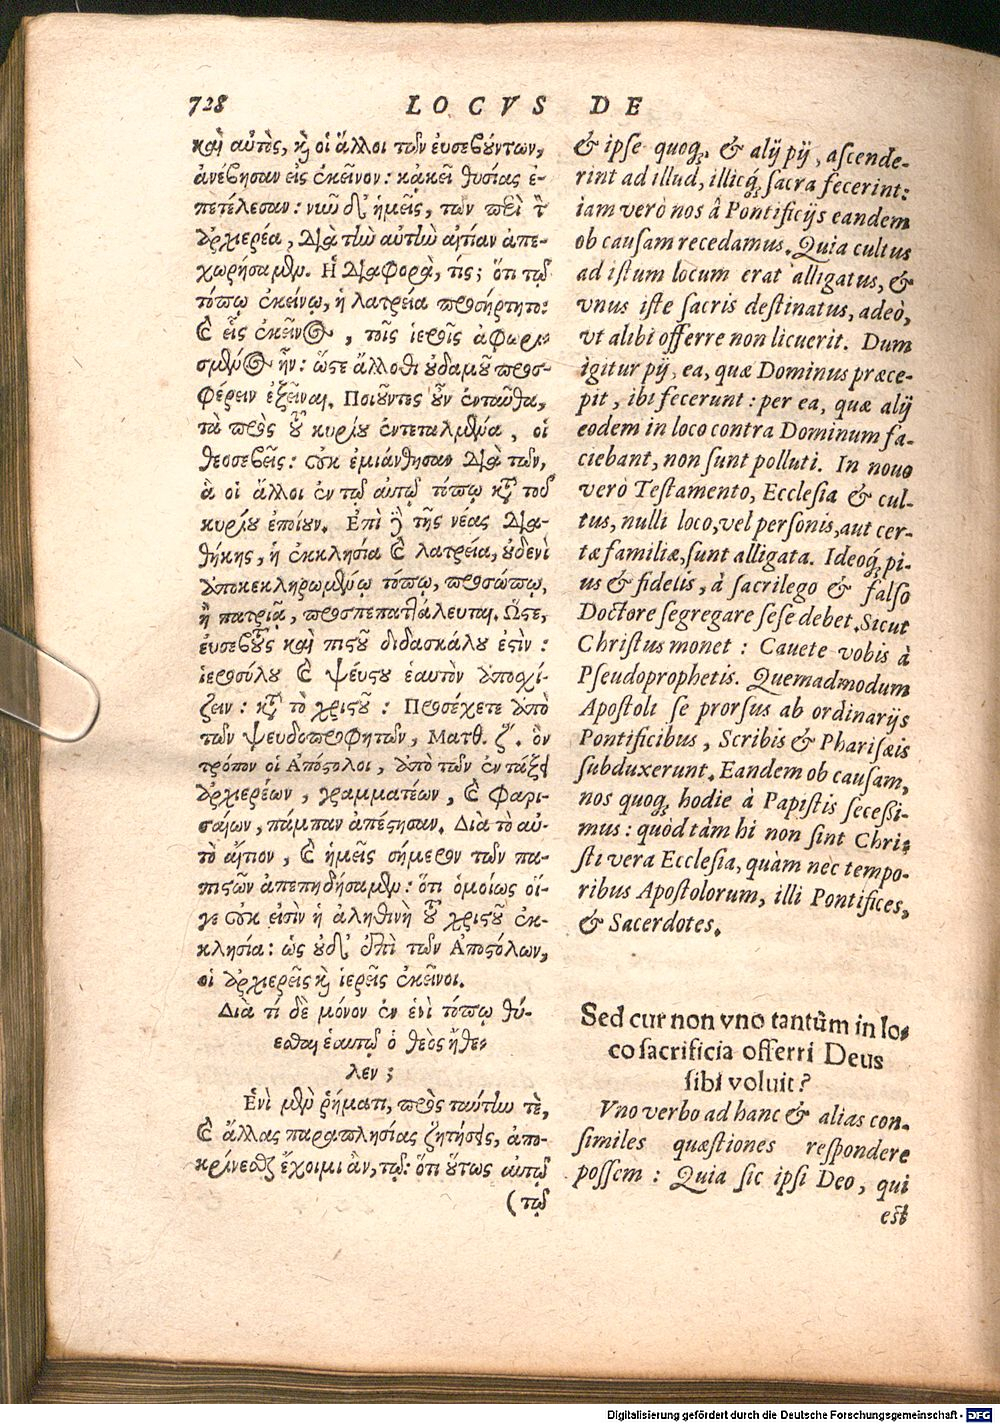 728 LOCVS DE
καὶ αὐτὸς, καὶ οἱ ἄλλοι τῶν εὐσεβούντων,
ἀνέβησαν εἰς ἐκεῖνον: κᾀκεῖ θυσίας ἐ-
πετέλεσαν: νιωῦ δ' ἡμεῖς, τῶν περὶ τὸν
ἀρχιερέα, διὰ τὴν αὐτὴν αἰτίαν ἀπε-
χωρήσαμεν. Ἡ διαφορὰ, τίς; ὅτι τῷ
τόπῳ ἐκείνῳ, ἡ λατρεία προσήρτητο:
καὶ εἷς ἐκεῖνος, τοῖς ἱεροῖς ἀφωρι-
σμένος ἦν: ὥστε ἄλλοθι οὐδαμοῦ προσ-
φέρειν ἐξεῖναι. Ποιοῦντες οὖν ἐνταῦθα,
τὰ πρὸς τοῦ κυρίου ἐντεταλμένα, οἱ
θεοσεβεῖς: οὐκ ἐμιάνθησαν διὰ τῶν,
ἃ οἱ ἄλλοι ἐν τῷ αὐτῷ τόπῳ κατὰ τοῦ
κυρίου ἐποίουν. Ἐπὶ δὲ τῆς νέας δια-
θήκης, ἡ ἐκκλησία καὶ λατρεία, οὐδενὶ
ἀποκεκληρωμένῳ τόπῳ, προσώπῳ,
ἢ πατριᾷ, προσπεπαττάλευται. Ὥστε,
εὐσεβοῦς καὶ πιστοῦ διδασκάλου ἐστὶν:
ἱεροσύλου καὶ ψεύστου ἑαυτὸν ἀποσχί-
ζειν: κατὰ τὸ χριστοῦ: Προσέχετε ἀπὸ
τῶν ψευδοπροφητῶν, Ματθ. ζ. ὃν
τρόπον οἱ Ἀπόστολοι, ἀπὸ τῶν ἐν τάξει
ἀρχιερέων, γραμματέων, καὶ Φαρι-
σαίων, πάμπαν ἀπέστησαν. Διὰ τὸ αὐ-
τὸ αἴτιον, καὶ ἡμεῖς σήμερον τῶν πα-
πιστῶν ἀπεπηδήσαμεν: ὅτι ὁμοίως οἵ-
γε οὐκ εἰσὶν ἡ ἀληθινὴ τοῦ χριστοῦ ἐκ-
κλησία: ὡς οὐδ' ἐπὶ τῶν Ἀποστόλων,
οἱ ἀρχιερεῖς καὶ ἱερεῖς ἐκεῖνοι.
Διὰ τί δὲ μόνον ἐν ἑνὶ τόπῳ θύ-
εσθαι ἑαυτῷ ὁ θεὸς ἤθε-
λεν;
Ἑνὶ μὲν ῥήματι, πρὸς ταύτην τὲ,
καὶ ἄλλας παραπλησίας ζητήσεις, ἀπο-
κρίνεσθαι ἔχοιμι ἂν, τῷ: ὅτι οὕτως αὐτῷ
(τῷ
& ipse quoq;, & alij pij, ascende-
rint ad illud, illicq́; sacra fecerint:
iam verò nos â Pontificijs eandem
ob causam recedamus. Quia cultus
ad istum locum erat alligatus, &
vnus iste sacris destinatus, adeò,
vt alibi offerre non licuerit. Dum
igitur pij, ea, quæ Dominus præce-
pit, ibi fecerunt: per ea, quæ alij
eodem in loco contra Dominum fa-
ciebant, non sunt polluti. In nouo
verò Testamento, Ecclesia & cul-
tus, nulli loco, vel personis, aut cer-
tæ familiæ, sunt alligata. Ideoq́; pi-
us & fidelis, à sacrilego & falso
Doctore segregare sese debet. Sicut
Christus monet : Cauete vobis à
Pseudoprophetis. Quemadmodum
Apostoli se prorsus ab ordinarijs
Pontificibus, Scribis & Pharisæis
subduxerunt. Eandem ob causam,
nos quoq; hodie à Papistis secessi-
mus: quòd tàm hi non sint Chri-
sti vera Ecclesia, quàm nec tempo-
ribus Apostolorum, illi Pontifices,
& Sacerdotes.
Sed cur non vno tantùm in lo-
co sacrificia offerri Deus
sibi voluit?
Vno verbo ad hanc & alias con-
similes quæstiones respondere
possem : Quia sic ipsi Deo, qui
est
Digitalisierung gefördert durch die Deutsche Forschungsgemeinschaft - DFG